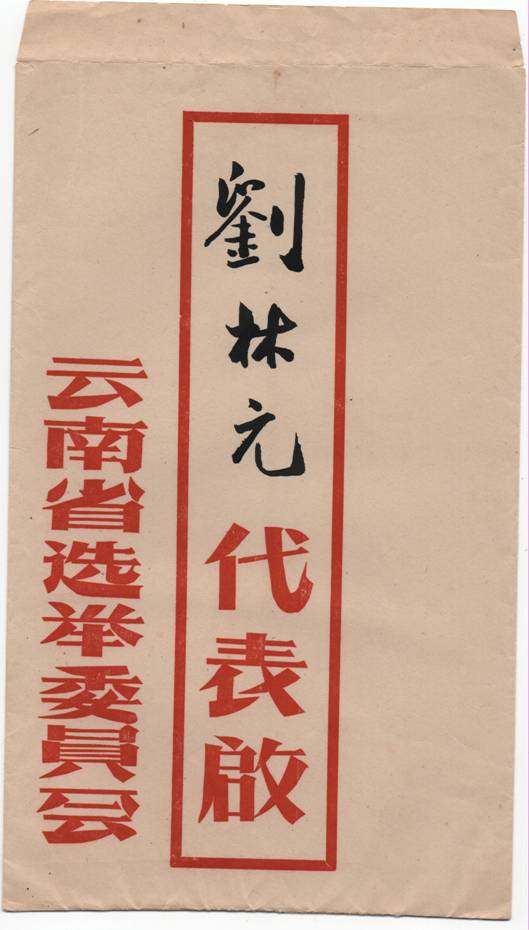 劉林元代表啟
云南省选举委員会